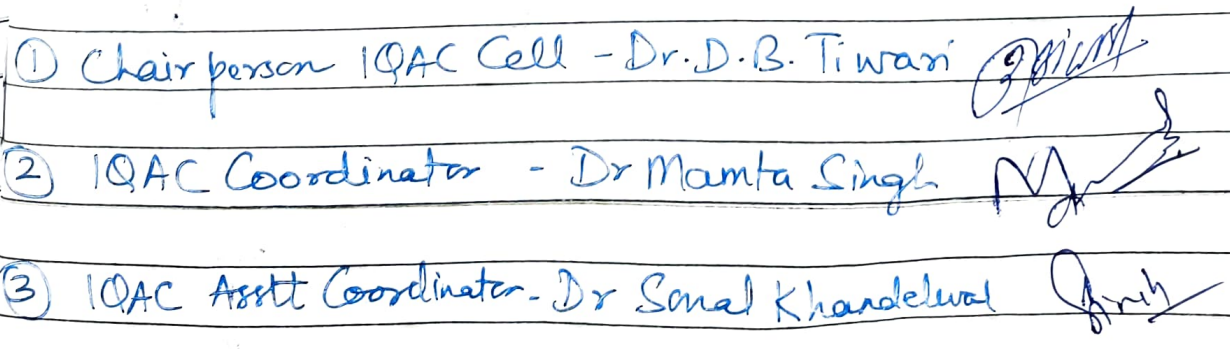 ① Chairperson IQAC Cell - Dr. D.B. Tiwari
② IQAC Coordinator - Dr Mamta Singh
③ IQAC Asstt Coordinator - Dr Sonal Khandelwal